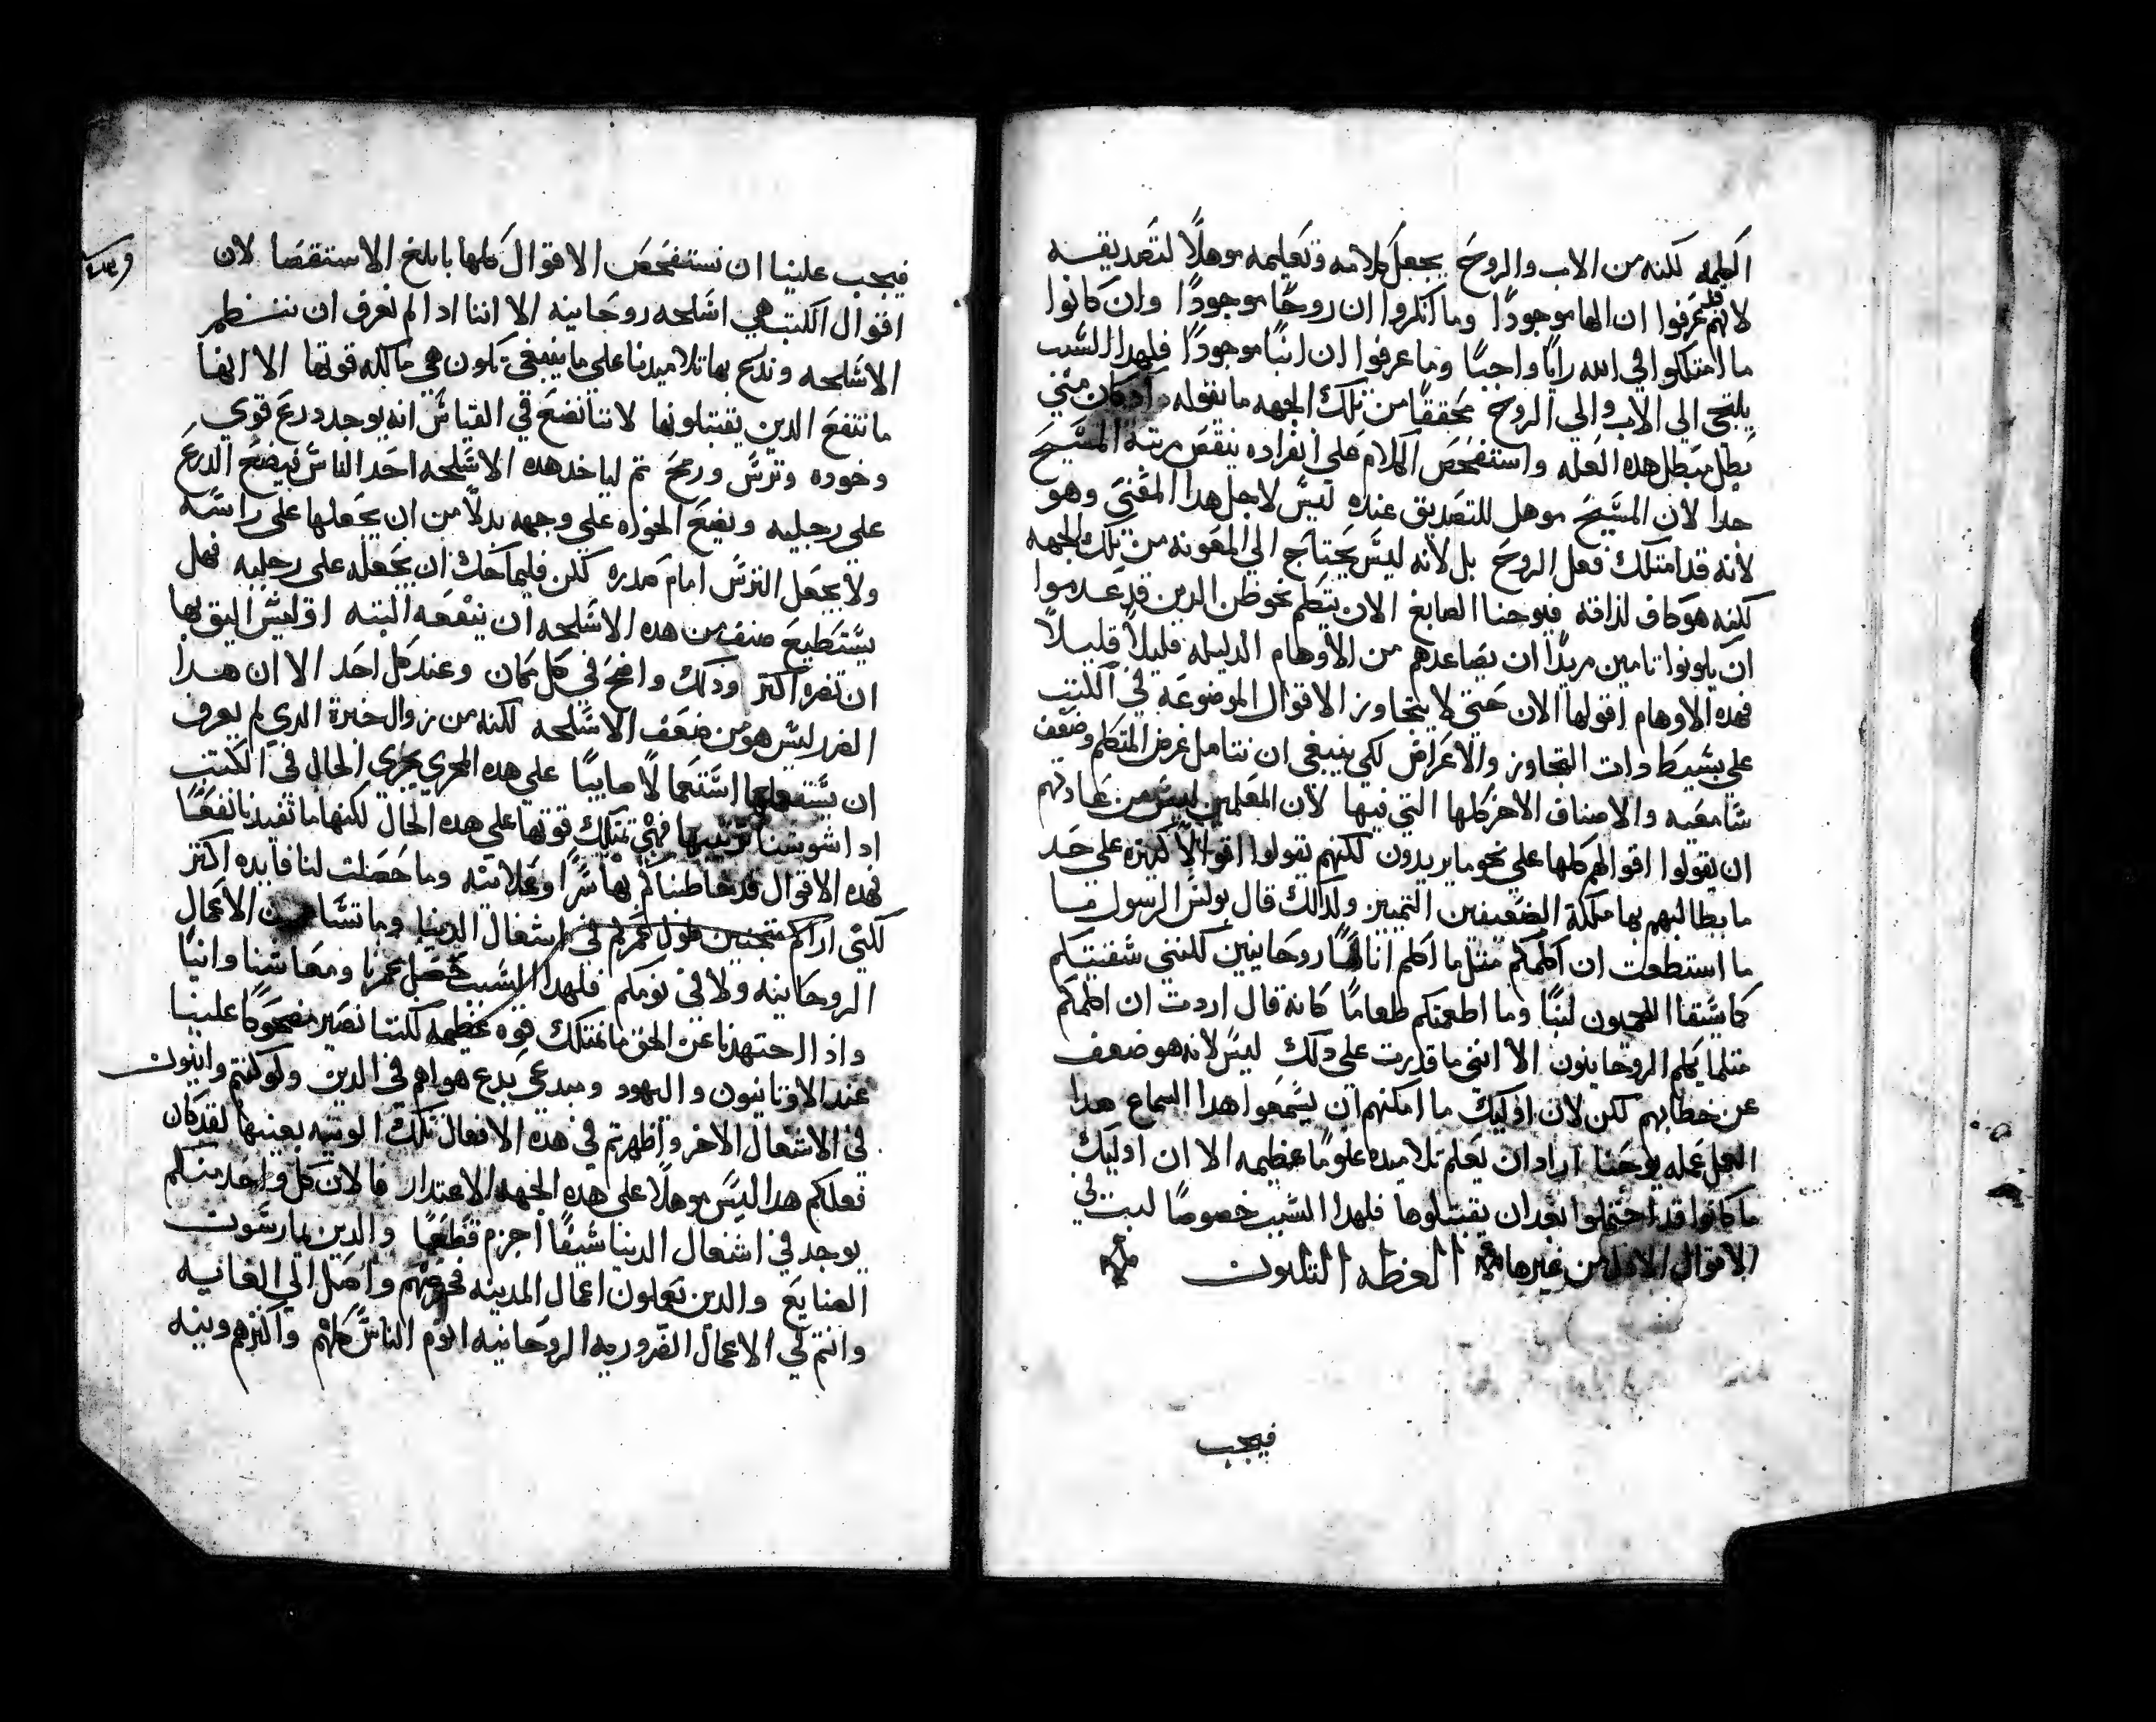 الكلمه لكنه من الاب والروح يجعل كلامه وتعليمه موهلًا لتصديقه
لانهم قد عرفوا ان الها موجودًا وما انكروا ان روحًا موجودًا وان كانوا
ما امتلكوا في الله رايًا واجبًا وما عرفوا ان ابنًا موجودًا فلهدا السبب
يلتجي الي الاب والي الروح محققًا من تلك الجهه ما يقوله كان متي
بطل مبطل هده العله واستفحص الكلام علي انفراده ينقص مرتبة المسيح
جدا لان المسيح موهل للتصديق عنده ليس لاجل هدا المعني وهو
لانه قد امتلك فعل الروح بل لانه ليس يحتاج الي المعونه من تلك الجهه
لكنه هو كاف لداته فيوحنا الصابغ الان يتكلم نحو ظن الدين قد عدموا
ان يكونوا تامين مريدًا ان يصاعدهم من الاوهام الدليله قليلًا قليلًا
فهده الاوهام اقولها الان حتي لا يتجاوز الاقوال الموضوعه في الكتب
علي بسيط دات التجاوز والاعراض لكي ينبغي ان نتامل غرض المتكلم وضعف
سامعيه والاصناف الاخر كلها التي فيها لان المعلمين ليس من عادتهم
ان يقولوا اقوالهم كلها علي نحو ما يريدون لكنهم يقولوا اقوالًا كثيره علي حد
ما يطالبهم بها ملكة الضعيفين التمييز ولدالك قال بولس الرسول
ما استطعت ان اكلمكم مثل ما اكلم اناسًا روحانيين لكنني سقيتكم
كما يسقا اللحميون لبنًا وما اطعمتكم طعامًا كانه قال اردت ان اكلمكم
مثلما يكلم الروحانيون الا انني ما قدرت علي دلك ليس لانه هو ضعف
عن خطابهم لكن لان اوليك ما امكنهم ان يسمعوا هدا السماع هدا
العمل عمله يوحنا اراد ان يعلم تلاميده علومًا عظيمه الا ان اوليك
ما كانوا قد احتملوا بعد ان يقتبلوها فلهدا السبب خصوصًا لبت في
الاقوال الادل من غيرها العظه الثلثون
فيجب
فيجب علينا ان نستفحص الاقوال كلها بابلغ الاستقصا لان
اقوال الكتب هي اسلحه روحانيه الا اننا ادا لم نعرف ان ننظم
الاسلحه وندرع بها تلاميدنا علي ما ينبغي تكون هي مالكه قوتها الا انها
ما تنفع الدين يقتبلونها لاننا نضع في القياس انه يوجد درع قوي
وخوده وترس ورمح تم لياخد هده الاسلحه احد الناس فيضع الدرع
علي رجليه ويضع الخوده علي وجهه بدلًا من ان يجعلها علي راسه
ولا يجعل الترس امام صدره لكن فليماحك ان يجعله علي رجليه فهل
يستطيع صنف من هده الاسلحه ان ينفعه البته اوليس اليق بها
ان تضره اكتر ودلك واضح في كل مكان وعند كل احد الا ان هدا
الضرر ليس هو من ضعف الاسلحه لكنه من زوال خبرة الدي لم يعرف
ان يستعملها استعمالًا صايبًا علي هده المجري يجري الحال في الكتب
ادا شوشنا ترتيبها فهي تمتلك قوتها علي هده الحال لكنها ما تفيدنا نفعًا
فهده الاقوال قد خاطبناكم بها سرًا وعلانيه وما حصلت لنا فايده اكتر
لكني اراكم متجننين طول عمركم في اشغال الدنيا وما الاعمال
الروحانيه ولا في نومكم فلهدا السبب حصل عمرنا ومعاشنا وانيًا
واد اجتهدنا عن الحق ما نمتلك قوه عظيمه لكننا نصير مضحوكًا علينا
عند الاوتانيون واليهود ومبدعي بدع هواهم في الدين ولو كنتم وانيون
في الاشغال الاخر واظهرتم في هده الافعال تلك الونيه بعينها لقد كان
فعلكم هدا ليس موهلًا علي هده الجهه الاعتدار فالان كل واحد منكم
يوجد في اشغال الدنيا سيفًا اجزم قطعًا والدين يمارسون
الصنايع والدين يعملون اعمال المدينه واصل الي الغايه
وانتم في الاعمال الضروريه الروحانيه الوم الناس كلهم واكثرهم ونيه